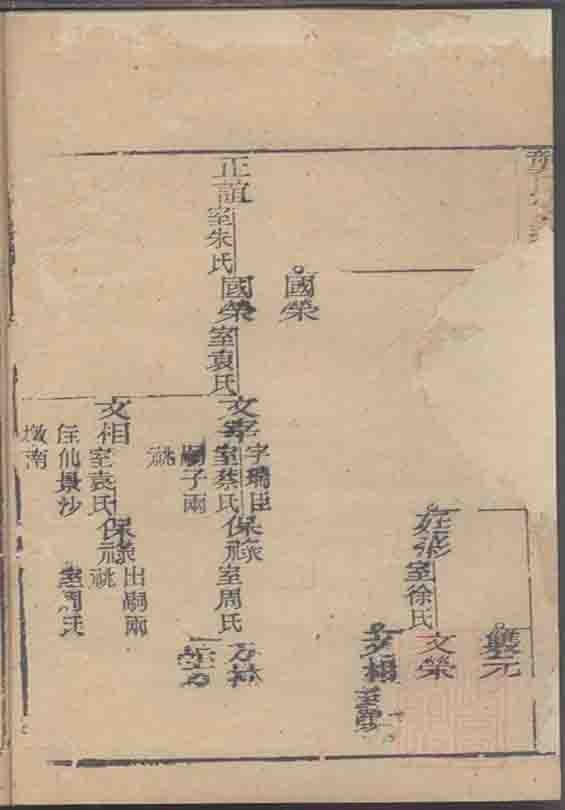 雙元
文榮
室徐氏
文楊
國榮
正誼
室朱氏
國榮
室袁氏
文宰
字瑞臣
室蔡氏
嗣子兩
祧
保祿
室周氏
万林
文相
室袁氏
住仙景沙
墩南
保祿
出嗣兩
祧
室周氏